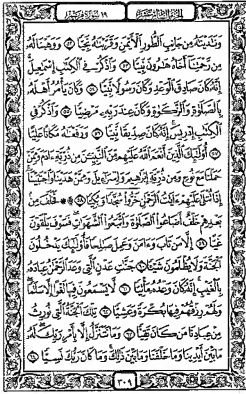 وَنَٰدَيْنَٰهُ مِن جَانِبِ ٱلطُّورِ ٱلْأَيْمَنِ وَقَرَّبْنَٰهُ نَجِيًّا ٥٢ وَوَهَبْنَا لَهُۥ
مِن رَّحْمَتِنَآ أَخَاهُ هَٰرُونَ نَبِيًّا ٥٣ وَٱذْكُرْ فِى ٱلْكِتَٰبِ إِسْمَٰعِيلَ
إِنَّهُۥ كَانَ صَادِقَ ٱلْوَعْدِ وَكَانَ رَسُولًا نَّبِيًّا ٥٤ وَكَانَ يَأْمُرُ أَهْلَهُۥ
بِٱلصَّلَوٰةِ وَٱلزَّكَوٰةِ وَكَانَ عِندَ رَبِّهِۦ مَرْضِيًّا ٥٥ وَٱذْكُرْ فِى
ٱلْكِتَٰبِ إِدْرِيسَ إِنَّهُۥ كَانَ صِدِّيقًا نَّبِيًّا ٥٦ وَرَفَعْنَٰهُ مَكَانًا عَلِيًّا
٥٧ أُو۟لَٰٓئِكَ ٱلَّذِينَ أَنْعَمَ ٱللَّهُ عَلَيْهِم مِّنَ ٱلنَّبِيِّۦنَ مِن ذُرِّيَّةِ ءَادَمَ وَمِمَّنْ
حَمَلْنَا مَعَ نُوحٍ وَمِن ذُرِّيَّةِ إِبْرَٰهِيمَ وَإِسْرَٰٓءِيلَ وَمِمَّنْ هَدَيْنَا وَٱجْتَبَيْنَآ
إِذَا تُتْلَىٰ عَلَيْهِمْ ءَايَٰتُ ٱلرَّحْمَٰنِ خَرُّوا۟ سُجَّدًا وَبُكِيًّا ۩ ٥٨ فَخَلَفَ مِنۢ
بَعْدِهِمْ خَلْفٌ أَضَاعُوا۟ ٱلصَّلَوٰةَ وَٱتَّبَعُوا۟ ٱلشَّهَوَٰتِ فَسَوْفَ يَلْقَوْنَ
غَيًّا ٥٩ إِلَّا مَن تَابَ وَءَامَنَ وَعَمِلَ صَٰلِحًا فَأُو۟لَٰٓئِكَ يَدْخُلُونَ
ٱلْجَنَّةَ وَلَا يُظْلَمُونَ شَيْـًٔا ٦٠ جَنَّٰتِ عَدْنٍ ٱلَّتِى وَعَدَ ٱلرَّحْمَٰنُ عِبَادَهُۥ
بِٱلْغَيْبِ إِنَّهُۥ كَانَ وَعْدُهُۥ مَأْتِيًّا ٦١ لَّا يَسْمَعُونَ فِيهَا لَغْوًا إِلَّا سَلَٰمًا
وَلَهُمْ رِزْقُهُمْ فِيهَا بُكْرَةً وَعَشِيًّا ٦٢ تِلْكَ ٱلْجَنَّةُ ٱلَّتِى نُورِثُ
مِنْ عِبَادِنَا مَن كَانَ تَقِيًّا ٦٣ وَمَا نَتَنَزَّلُ إِلَّا بِأَمْرِ رَبِّكَ لَهُۥ
مَا بَيْنَ أَيْدِينَا وَمَا خَلْفَنَا وَمَا بَيْنَ ذَٰلِكَ وَمَا كَانَ رَبُّكَ نَسِيًّا ٦٤
٣٠٩